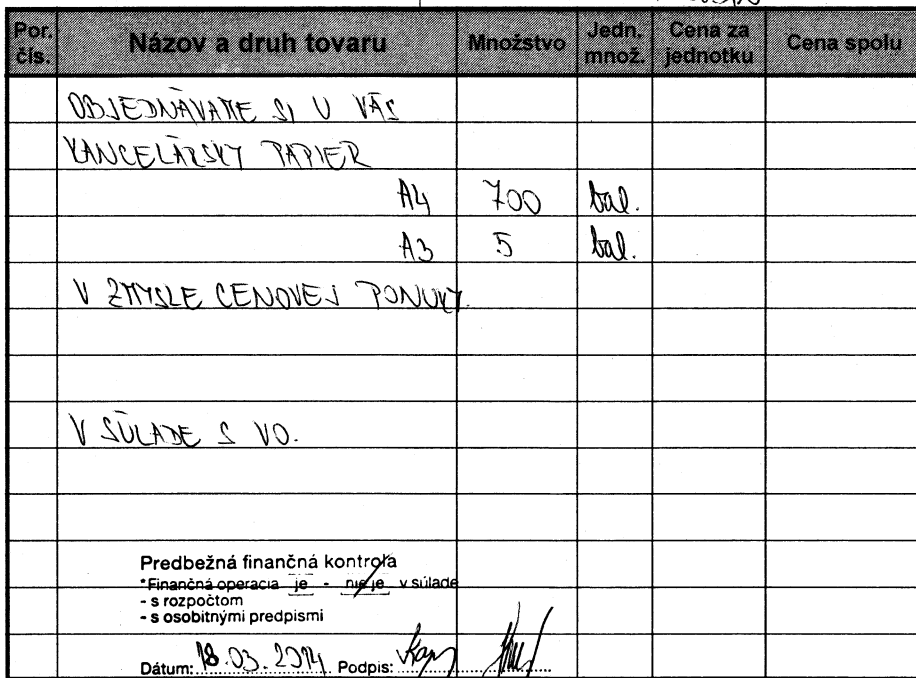 Por. čís. Názov a druh tovaru Množstvo Jedn. množ. Cena za jednotku Cena spolu
OBJEDNÁVAME SI U VÁS
KANCELÁRSKY PAPIER
A4 700 bal.
A3 5 bal.
V ZMYSLE CENOVEJ PONUKY.
V SÚLADE S VO.
Predbežná finančná kontrola
*Finančná operacia je - nie je v súlade
- s rozpočtom
- s osobitnými predpismi
Dátum: 18.03.2014 Podpis: